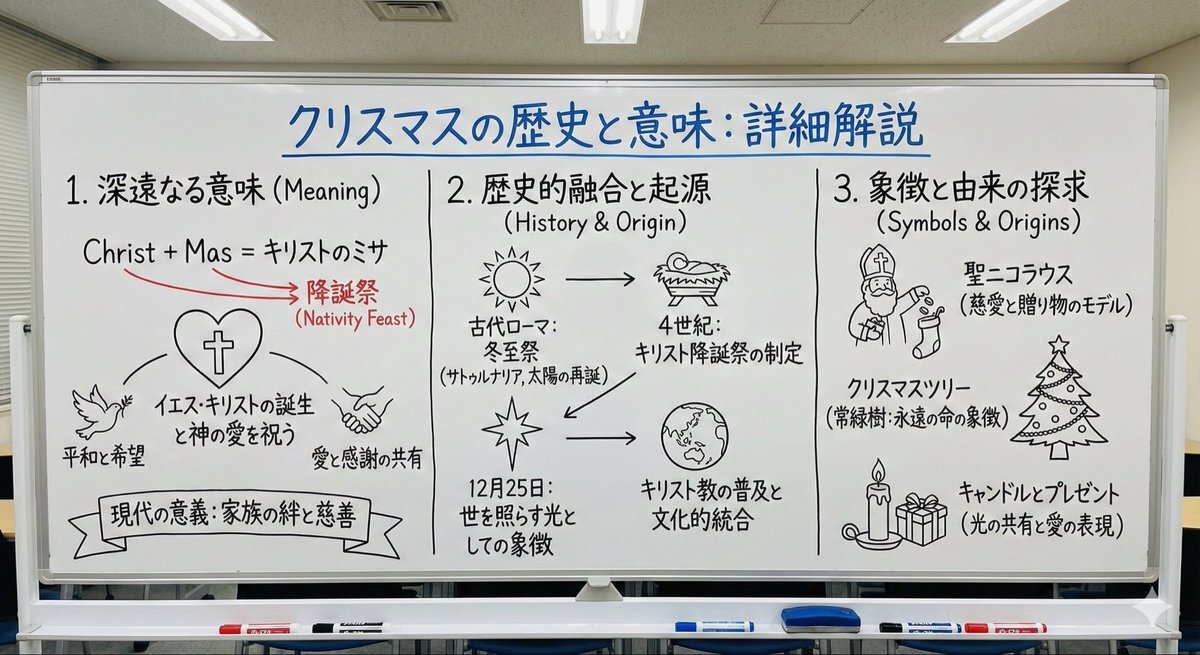 クリスマスの歴史と意味：詳細解説
1. 深遠なる意味 (Meaning)
Christ + Mas = キリストのミサ
降誕祭
(Nativity Feast)
イエス・キリストの誕生
と神の愛を祝う
平和と希望
愛と感謝の共有
現代の意義：家族の絆と慈善
2. 歴史的融合と起源
(History & Origin)
古代ローマ：
冬至祭
(サトゥルナリア, 太陽の再誕)
4世紀：
キリスト降誕祭の制定
12月25日：
世を照らす光と
しての象徴
キリスト教の普及と
文化的統合
3. 象徴と由来の探求
(Symbols & Origins)
聖ニコラウス
(慈愛と贈り物のモデル)
クリスマスツリー
(常緑樹：永遠の命の象徴)
キャンドルとプレゼント
(光の共有と愛の表現)